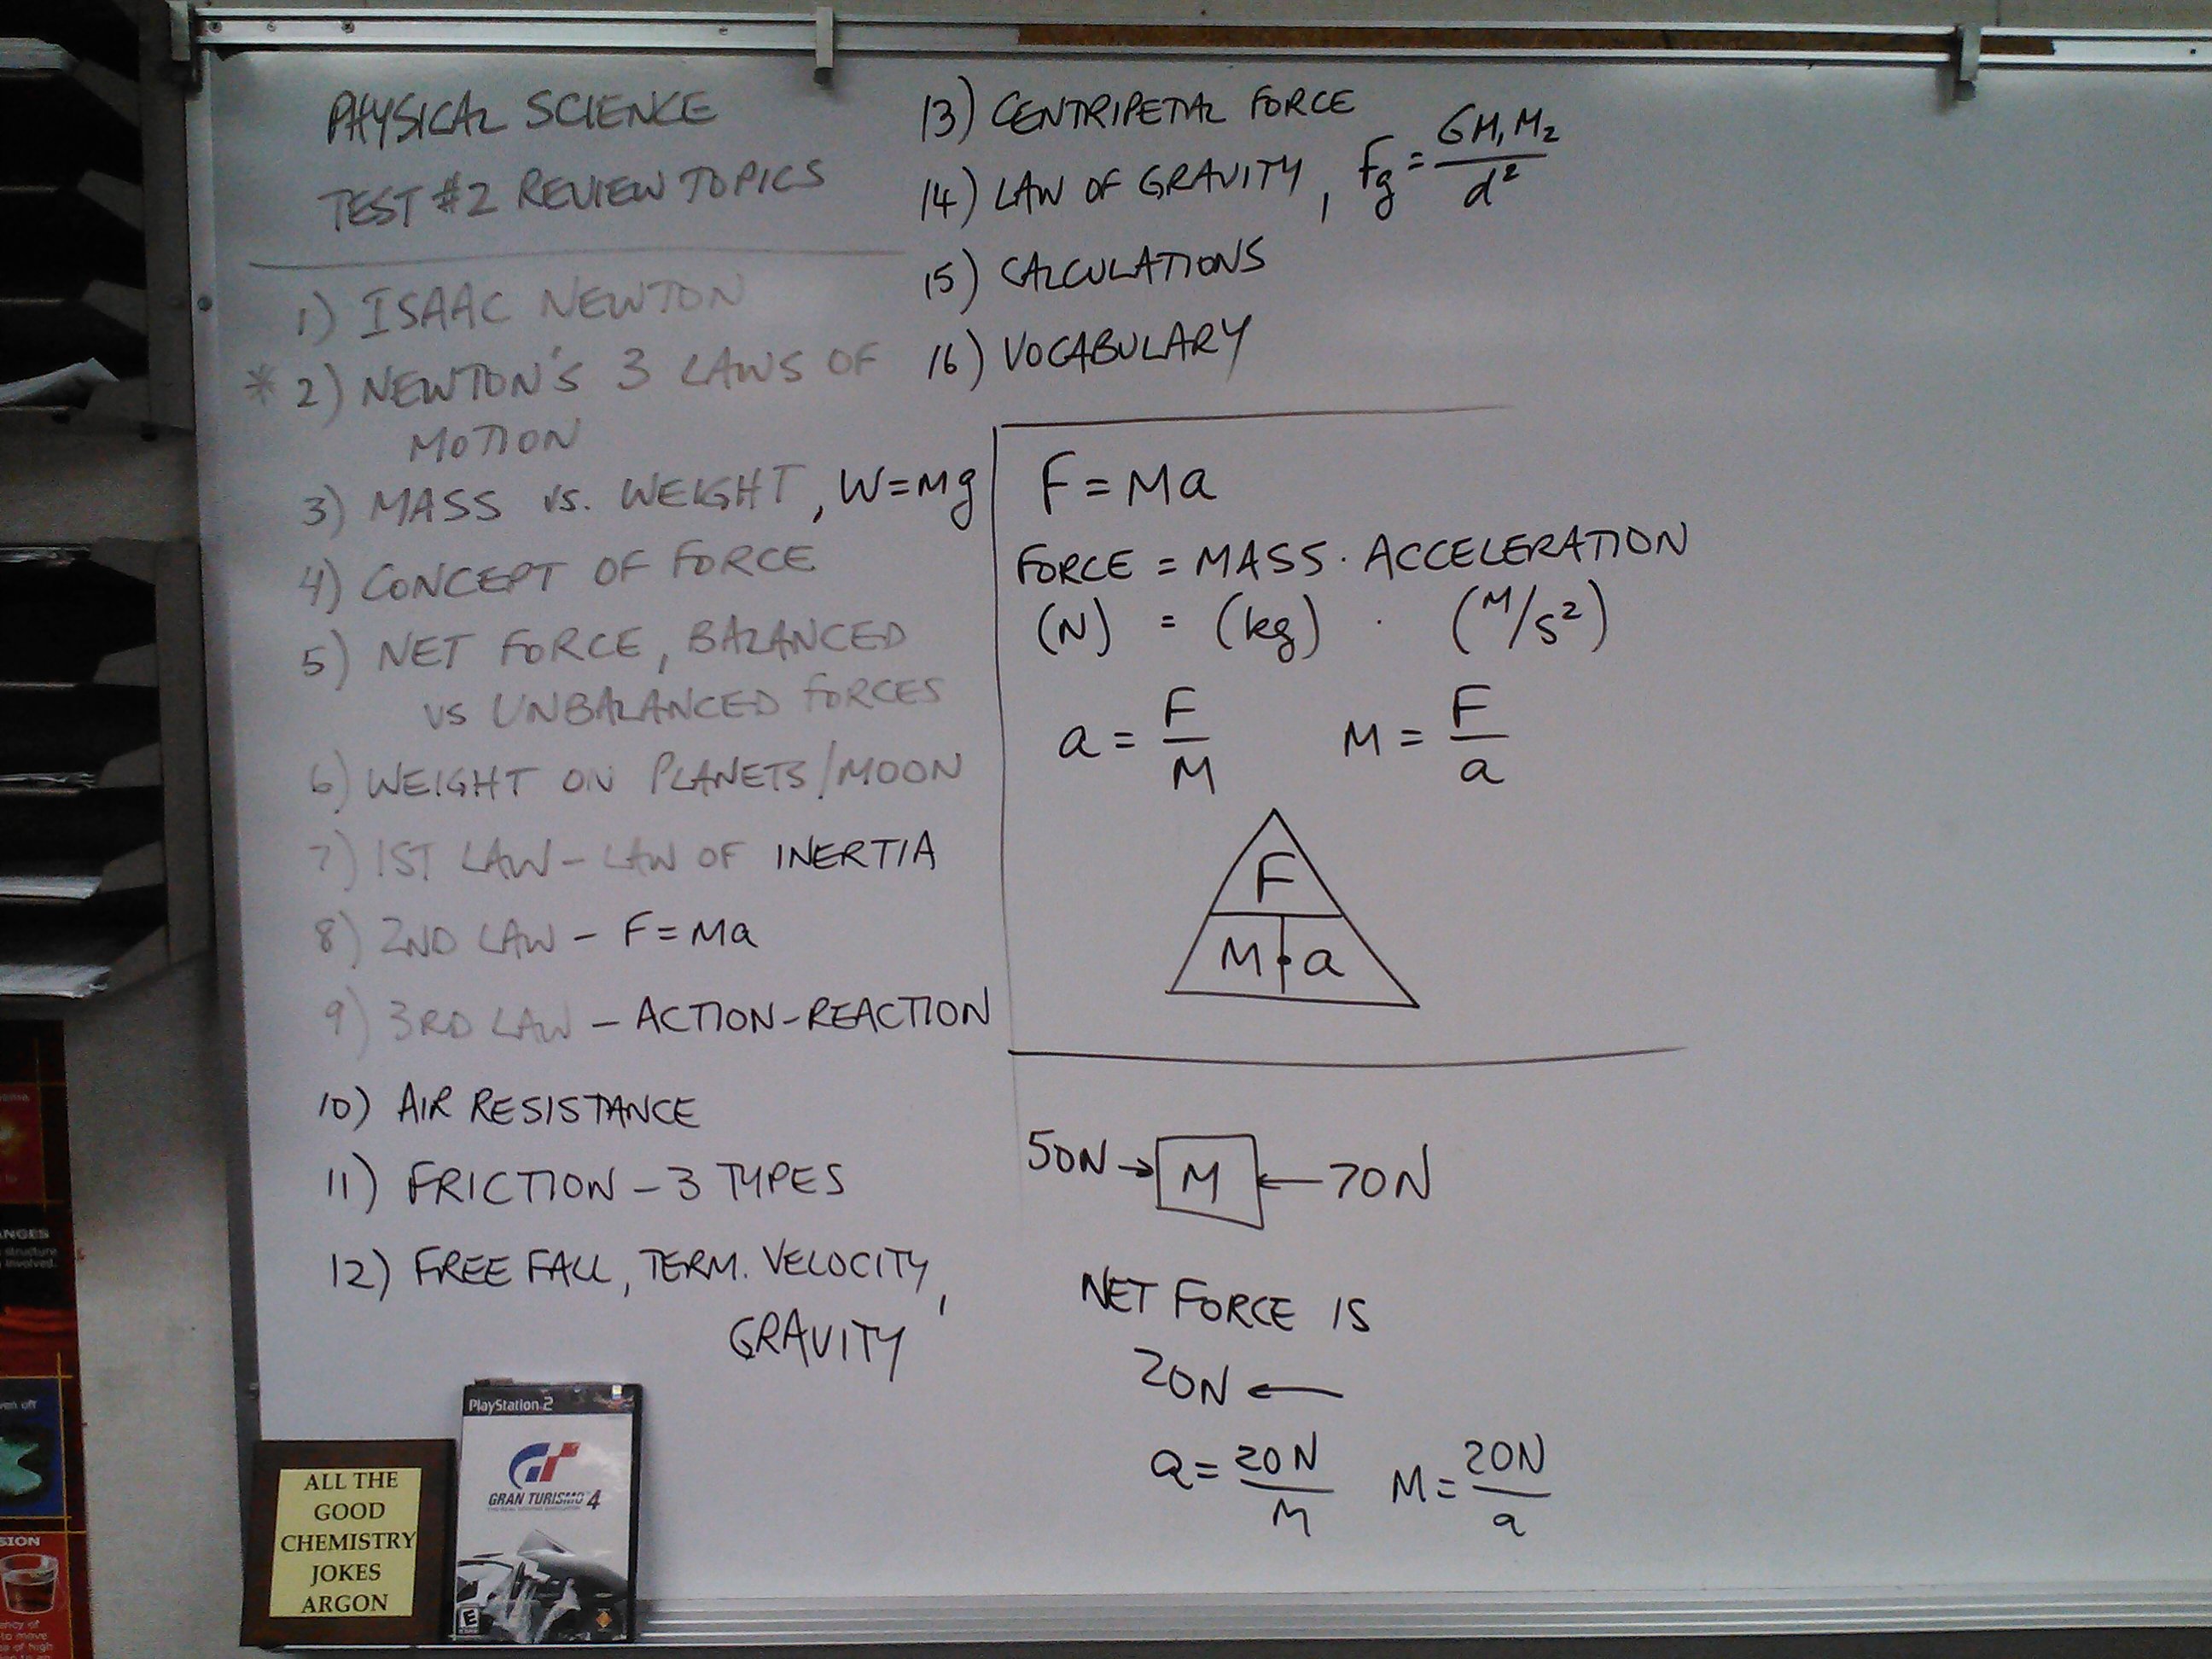 PHYSICAL SCIENCE
TEST #2 REVIEW TOPICS
1) ISAAC NEWTON
* 2) NEWTON'S 3 LAWS OF
MOTION
3) MASS VS. WEIGHT, W=Mg
4) CONCEPT OF FORCE
5) NET FORCE, BALANCED
VS UNBALANCED FORCES
6) WEIGHT ON PLANETS/MOON
7) 1ST LAW - LAW OF INERTIA
8) 2ND LAW - F=Ma
9) 3RD LAW - ACTION-REACTION
10) AIR RESISTANCE
11) FRICTION - 3 TYPES
12) FREE FALL, TERM. VELOCITY,
GRAVITY
13) CENTRIPETAL FORCE
14) LAW OF GRAVITY, Fg = GM₁M₂/d²
15) CALCULATIONS
16) VOCABULARY
F=Ma
FORCE = MASS · ACCELERATION
(N) = (kg) · (M/s²)
a = F/M M = F/a
F
M · a
50N → M ← 70N
NET FORCE IS
20N ←
a = 20N/M M = 20N/a
PlayStation 2
GT
GRAN TURISMO 4
E
ALL THE
GOOD
CHEMISTRY
JOKES
ARGON
ANGES
structure
involved.
ven off
SION
ency of
to move
se of high